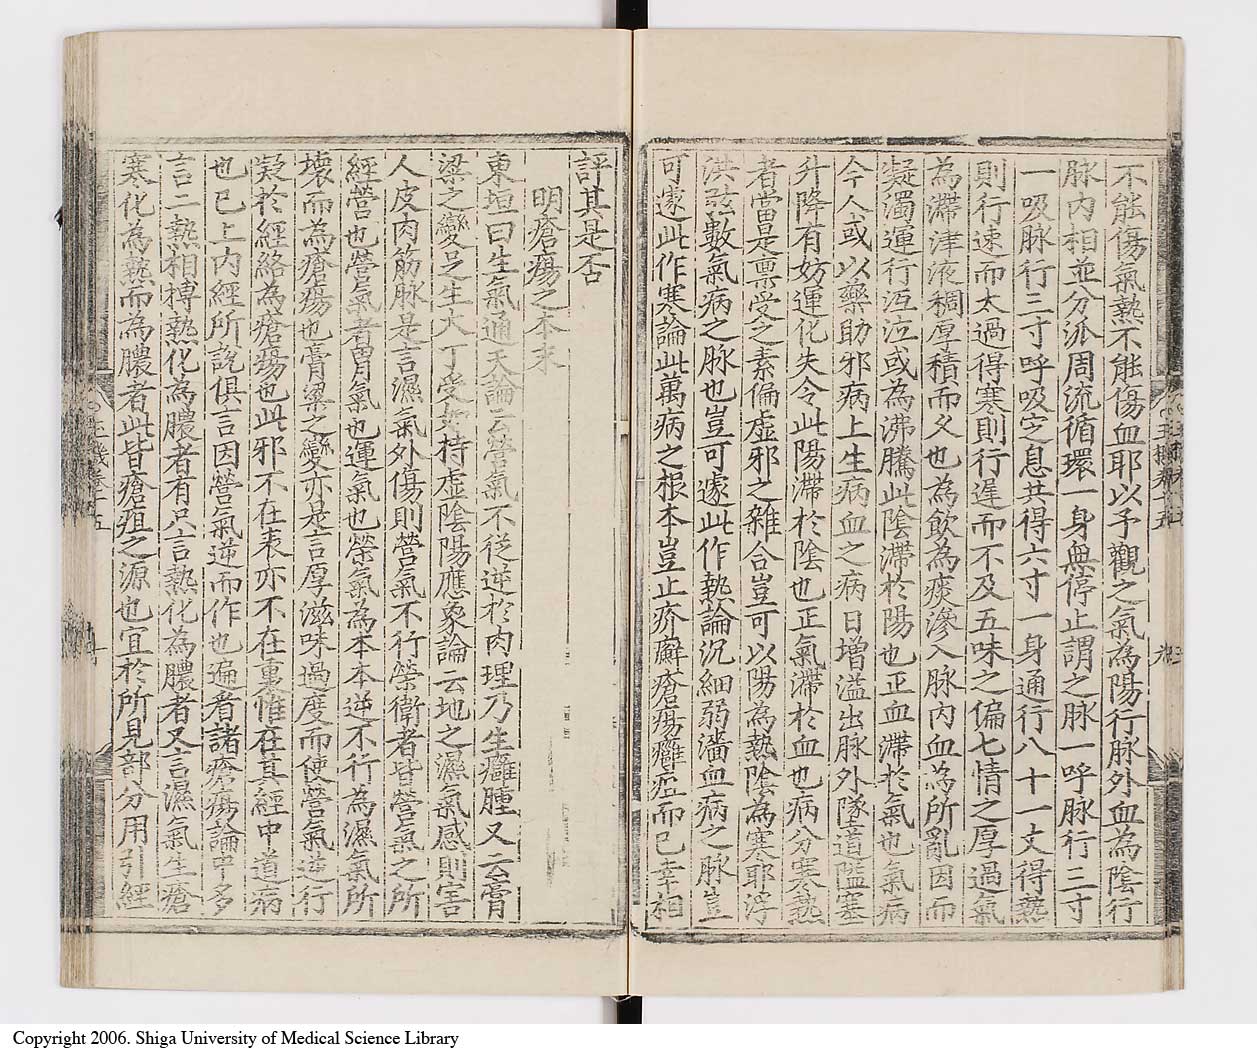 不能傷氣熱不能傷血耶以予觀之氣為陽行脉外血為陰行
脉内相並分派周流循環一身無停止謂之脉一呼脉行三寸
一吸脉行三寸呼吸定息共得六寸一身通行八十一丈得熱
則行速而太過得寒則行遲而不及五味之偏七情之厚過氣
為滯津液稠厚積而久也為飲為痰滲入脉内血為所亂因而
凝濁運行沍泣或為沸騰此陰滯於陽也正血滯於氣也氣病
今人或以藥助邪病上生病血之病日增溢出脉外隧道隘塞
升降有妨運化失令此陽滯於陰也正氣滯於血也病分寒熱
者當是禀受之素偏虛邪之雜合豈可以陽為熱陰為寒耶浮
洪弦數氣病之脉也豈可遽此作熱論沉細弱濇血病之脉豈
可遽此作寒論此萬病之根本豈止疥癬瘡瘍癰疽而已幸相
評其是否
明瘡瘍之本末
東垣曰生氣通天論云營氣不從逆於肉理乃生癰腫又云膏
梁之變足生大丁受如持虛陰陽應象論云地之濕氣感則害
人皮肉筋脉是言濕氣外傷則營氣不行榮衛者皆營氣之所
經營也營氣者胃氣也運氣也榮氣為本本逆不行為濕氣所
壞而為瘡瘍也膏粱之變亦是言厚滋味過度而使營氣逆行
凝於經絡為瘡瘍也此邪不在表亦不在裏惟在其經中道病
也已上内經所說俱言因營氣逆而作也遍看諸瘡瘍論中多
言二熱相搏熱化為膿者有只言熱化為膿者又言濕氣生瘡
寒化為熱而為膿者此皆瘡疽之源也宜於所見部分用引經
Copyright 2006. Shiga University of Medical Science Library